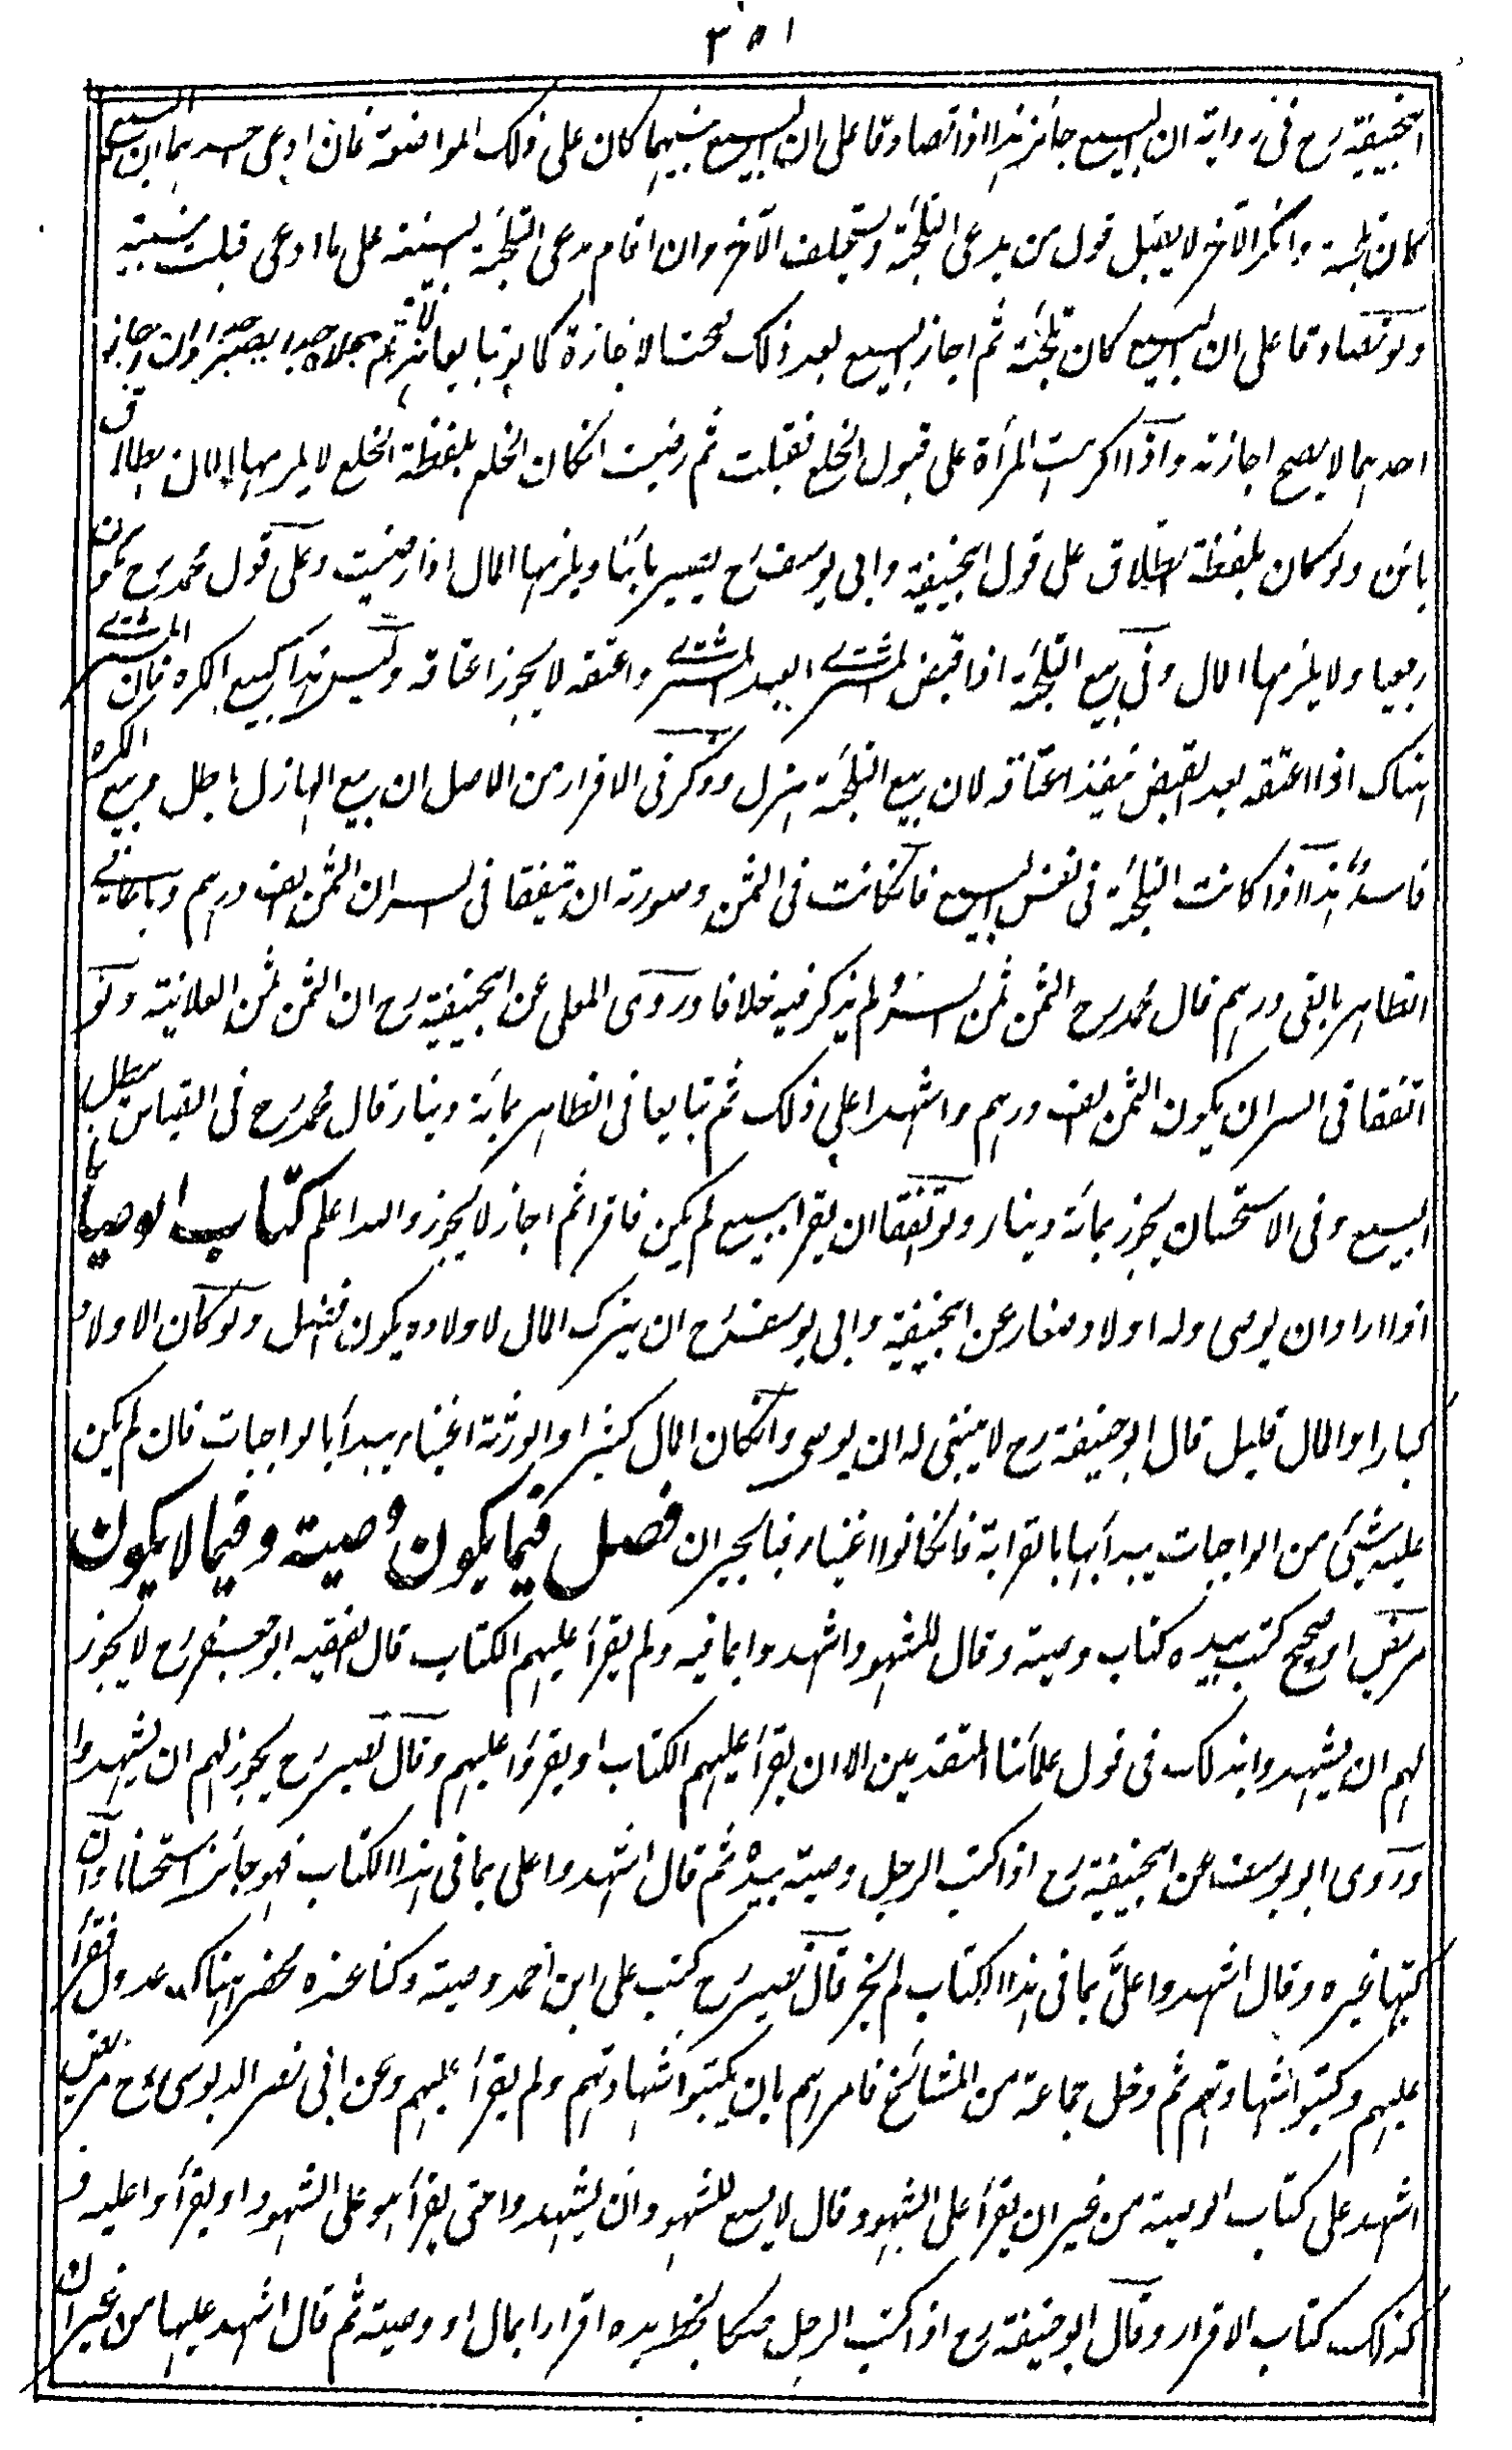 ٣٥١
ابیحنیفة رح فی روایة ان البیع جائز هذا اذا تصادقا علی ان البیع بینهما کان علی ذلک المواضعة فان ادعی احدهما ان البیع
کان تلجئة وانکر الآخر لا یقبل قول من یدعی التلجئة ویستحلف الآخر وان اقام مدعی التلجئة البینة علی ما ادعی قبلت بینته
ولو تصادقا علی ان البیع کان تلجئة ثم اجاز البیع بعد ذلک صحت الاجازة کما لو تبایعا هزلا ثم جعلاه جدا یصیر جدا وان اجاز
احدهما لا یصح اجازته واذا اکرهت المرأة علی قبول الخلع فقبلت ثم رضیت انکان الخلع بلفظة الخلع لا یلزمها المال الطلاق
بائن ولو کان بلفظة الطلاق علی قول ابیحنیفة وابی یوسف رح یصیر بائنا ویلزمها المال اذا رضیت وعلی قول محمد رح یکون
رجعیا ولا یلزمها المال وفی بیع التلجئة اذا قبض المشتری العبد المشتری واعتقه لا یجوز اعتاقه ولیس هذا کبیع المکره فان المشتری
هناک اذا اعتقه بعد القبض ینفذ اعتاقه لان بیع التلجئة هزل وذکر فی الاقرار من الاصل ان بیع الهازل باطل وبیع المکره
فاسد هذا اذا کانت التلجئة فی نفس البیع فانکانت فی الثمن وصورته ان یتفقا فی السر ان الثمن الف درهم وتبایعا فی
الظاهر بالفی درهم قال محمد رح الثمن ثمن السر ولم یذکر فیه خلافا وروی المعلی عن ابیحنیفة رح ان الثمن ثمن العلانیة ولو
اتفقا فی السر ان یکون الثمن الف درهم واشهدا علی ذلک ثم تبایعا فی الظاهر بمائة دینار قال محمد رح فی القیاس یبطل
البیع وفی الاستحسان یجوز بمائة دینار ولو اتفقا ان یقرا ببیع لم یکن فاقرا ثم اجاز لا یجوز والله اعلم کتاب الوصایا
اذا اراد ان یوصی وله اولاد صغار عن ابیحنیفة وابی یوسف رح ان یترک المال لاولاده یکون افضل ولو کان الاولاد
کبارا والمال قلیل قال ابو حنیفة رح لا ینبغی له ان یوصی وانکان المال کثیرا والورثة اغنیاء یبدأ بالواجبات فان لم یکن
علیه شیئ من الواجبات یبدأ بها بالقرابة فانکانوا اغنیاء فبالجیران فصل فیما یکون وصیة وفیما لا یکون
مریض او صحیح کتب بیده کتاب وصیته وقال للشهود اشهدوا بما فیه ولم یقرأ علیهم الکتاب قال الفقیه ابو جعفر رح لا یجوز
لهم ان یشهدوا بذلک فی قول علمائنا المتقدمین الا ان یقرأ علیهم الکتاب او یقرؤا علیهم وقال نصیر رح یجوز لهم ان یشهدوا
وروی ابو یوسف عن ابیحنیفة رح اذا کتب الرجل وصیته بیده ثم قال اشهدوا علی بما فی هذا الکتاب فهو جائز استحسانا وان
کتبها غیره وقال اشهدوا علیّ بما فی هذا الکتاب لم یجز قال نصیر رح کتب علی ابن احمد وصیته وکنا عنده بحضر هناک عدول فقرأ
علیهم وکتبوا شهادتهم ثم دخل جماعة من المشائخ فامرهم بان یکتبوا شهادتهم ولم یقرأ علیهم وعن ابی نصر الدبوسی رح مریض
اشهد علی کتاب الوصیة من غیر ان یقرأ علی الشهود قال لا یسع للشهود ان یشهدوا حتی یقرأ هو علی الشهود او یقرأوا علیه و
کذلک کتاب الاقرار وقال ابو حنیفة رح اذا کتب الرجل صکا بخط یده اقرارا بمال او وصیة ثم قال اشهد علیها من غیر ان